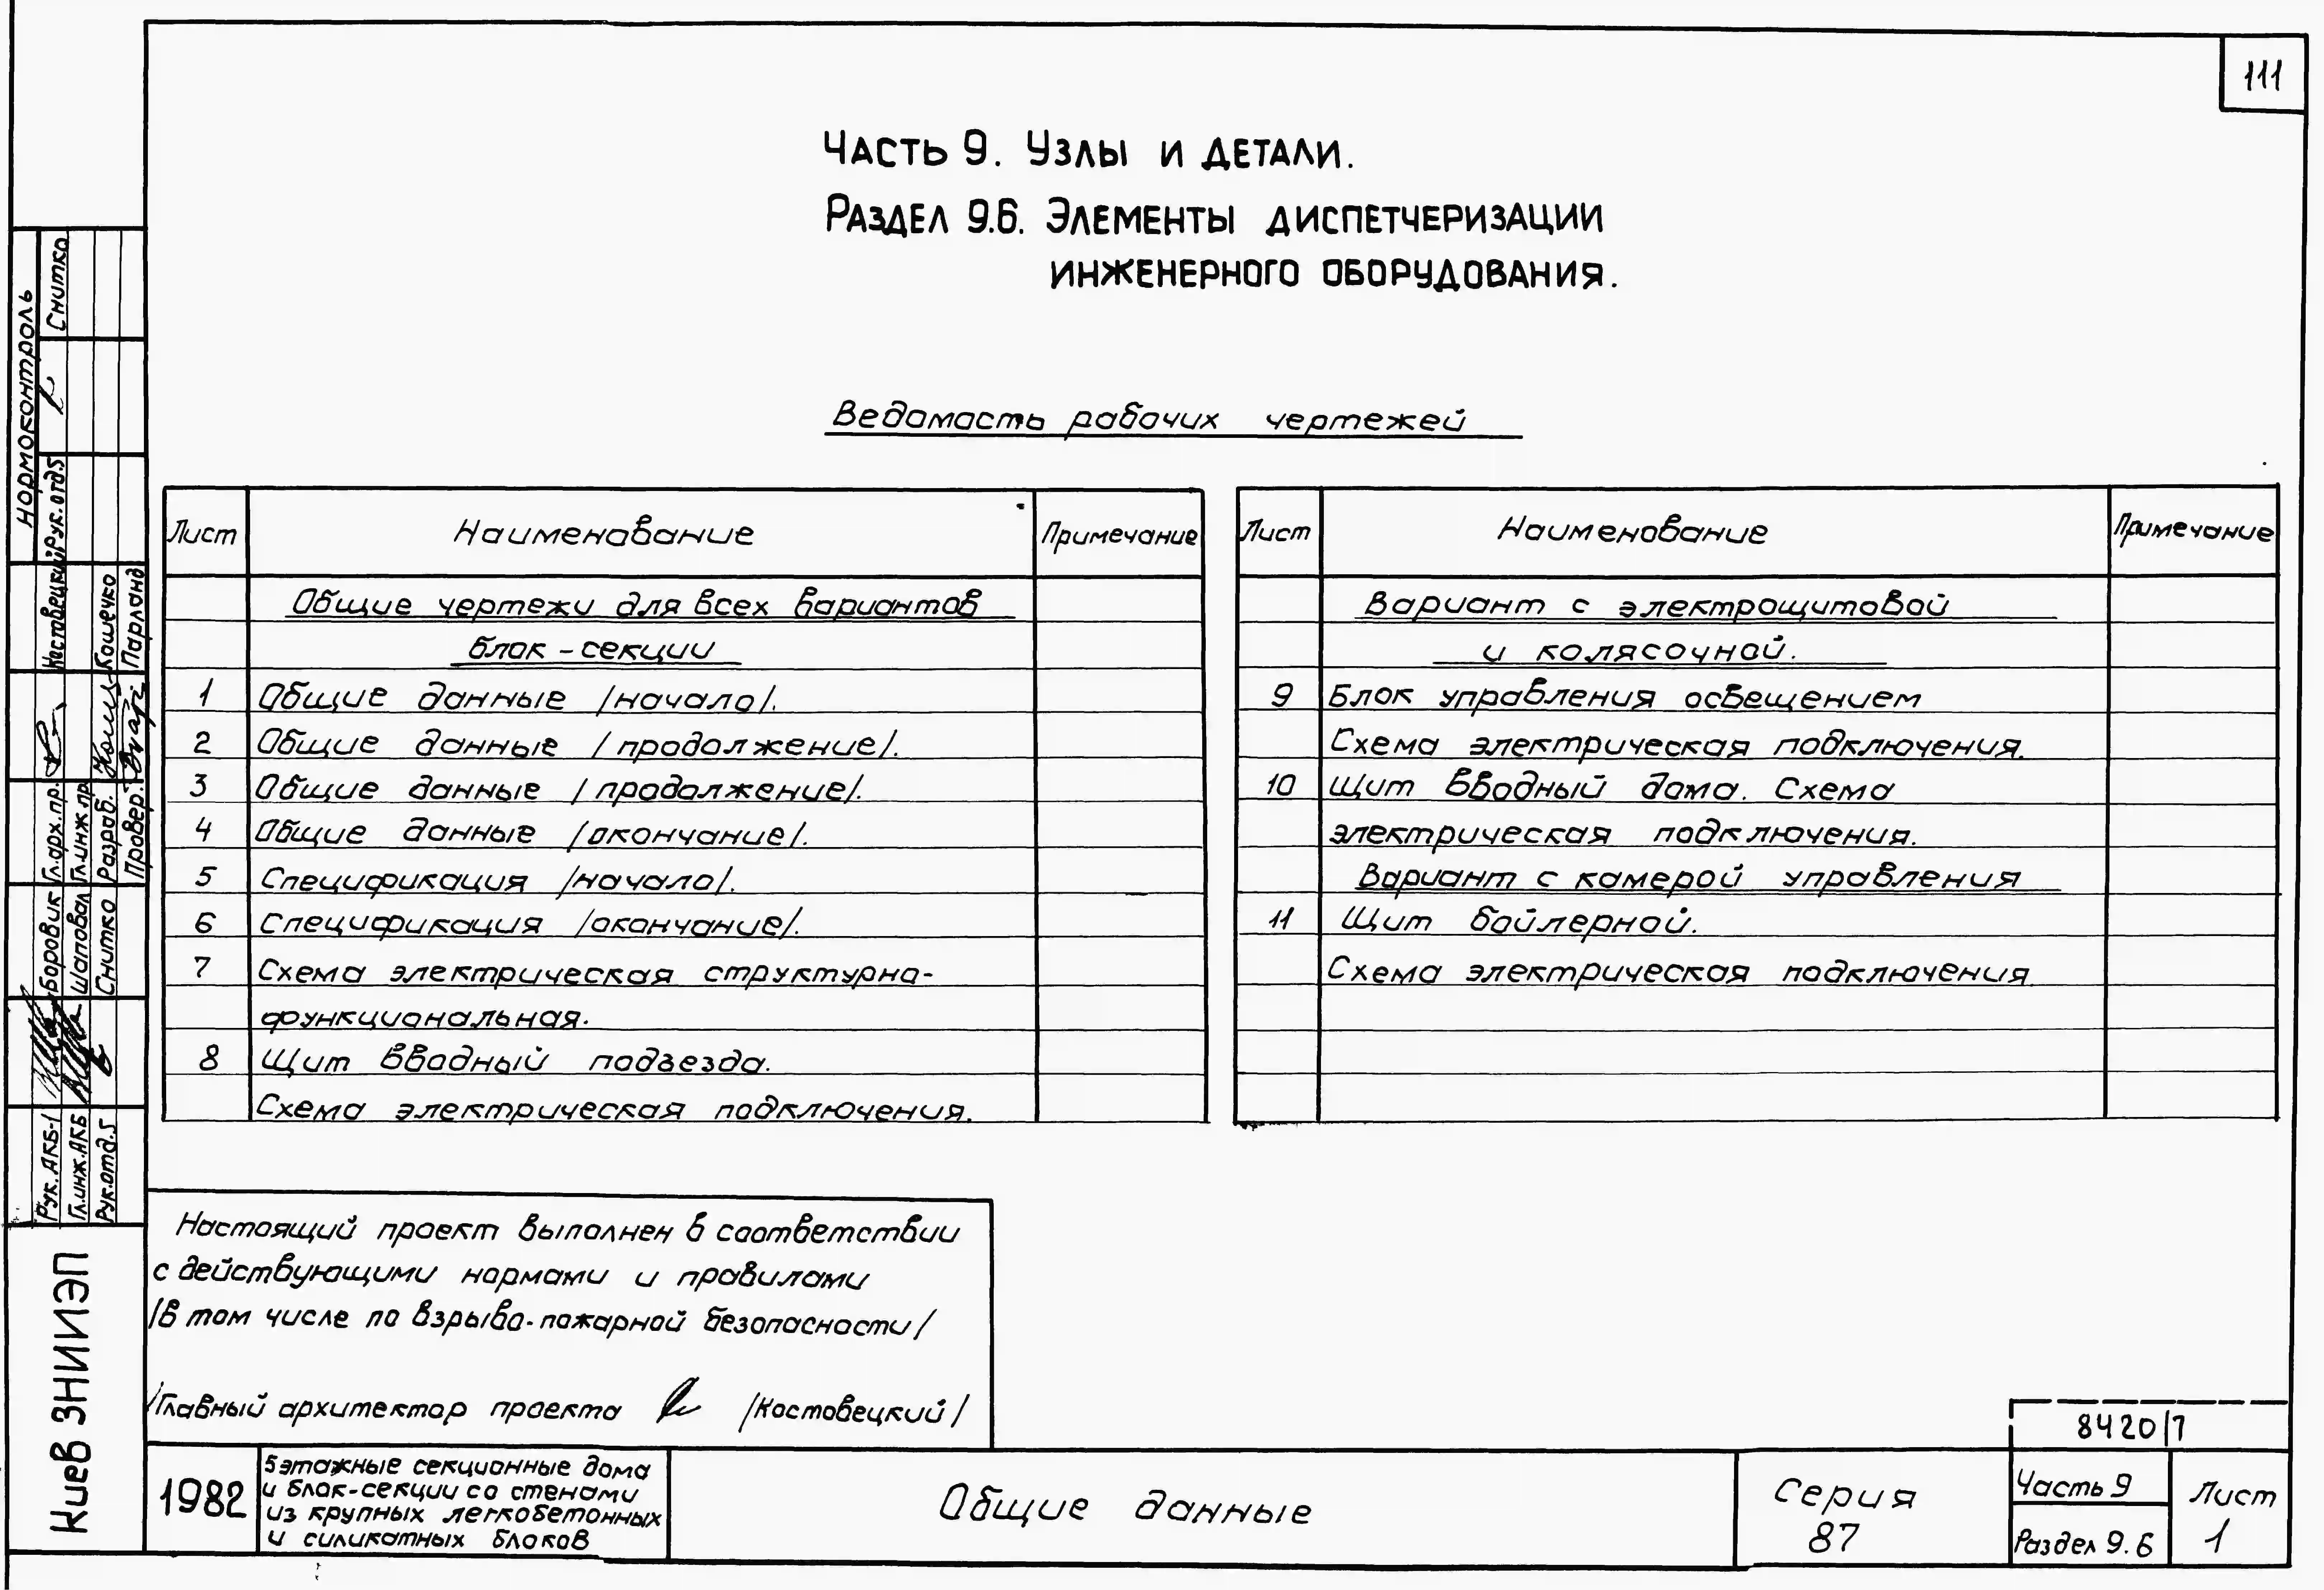 111
Часть 9. Узлы и детали.
Раздел 9.6. Элементы диспетчеризации
инженерного оборудования.
Ведомость рабочих чертежей
Лист Наименование Примечание
Общие чертежи для всех вариантов
блок-секции
1 Общие данные /начало/.
2 Общие данные /продолжение/.
3 Общие данные /продолжение/.
4 Общие данные /окончание/.
5 Спецификация /начало/.
6 Спецификация /окончание/.
7 Схема электрическая структурно-
функциональная.
8 Щит вводный подъезда.
Схема электрическая подключения.
Лист Наименование Примечание
Вариант с электрощитовой
и колясочной.
9 Блок управления освещением
Схема электрическая подключения.
10 Щит вводный дома. Схема
электрическая подключения.
Вариант с камерой управления
11 Щит бойлерной.
Схема электрическая подключения
Настоящий проект выполнен в соответствии
с действующими нормами и правилами
/в том числе по взрыво-пожарной безопасности/
/Главный архитектор проекта /Костовецкий/
нормоконтроль
Рук.отд.5 Снитко
Рук. АКБ-1 Боровик Гл.арх.пр. Костовецкий
Гл.инж.АКБ Шаповал Гл.инж.пр
Рук.отд.5 Снитко Разраб. Кошечко
Провер. Парланд
Киев ЗНИИЭП
1982
5этажные секционные дома
и блок-секции со стенами
из крупных легкобетонных
и силикатных блоков
Общие данные
Серия
87
8420/7
Часть 9
Раздел 9.6
Лист
1